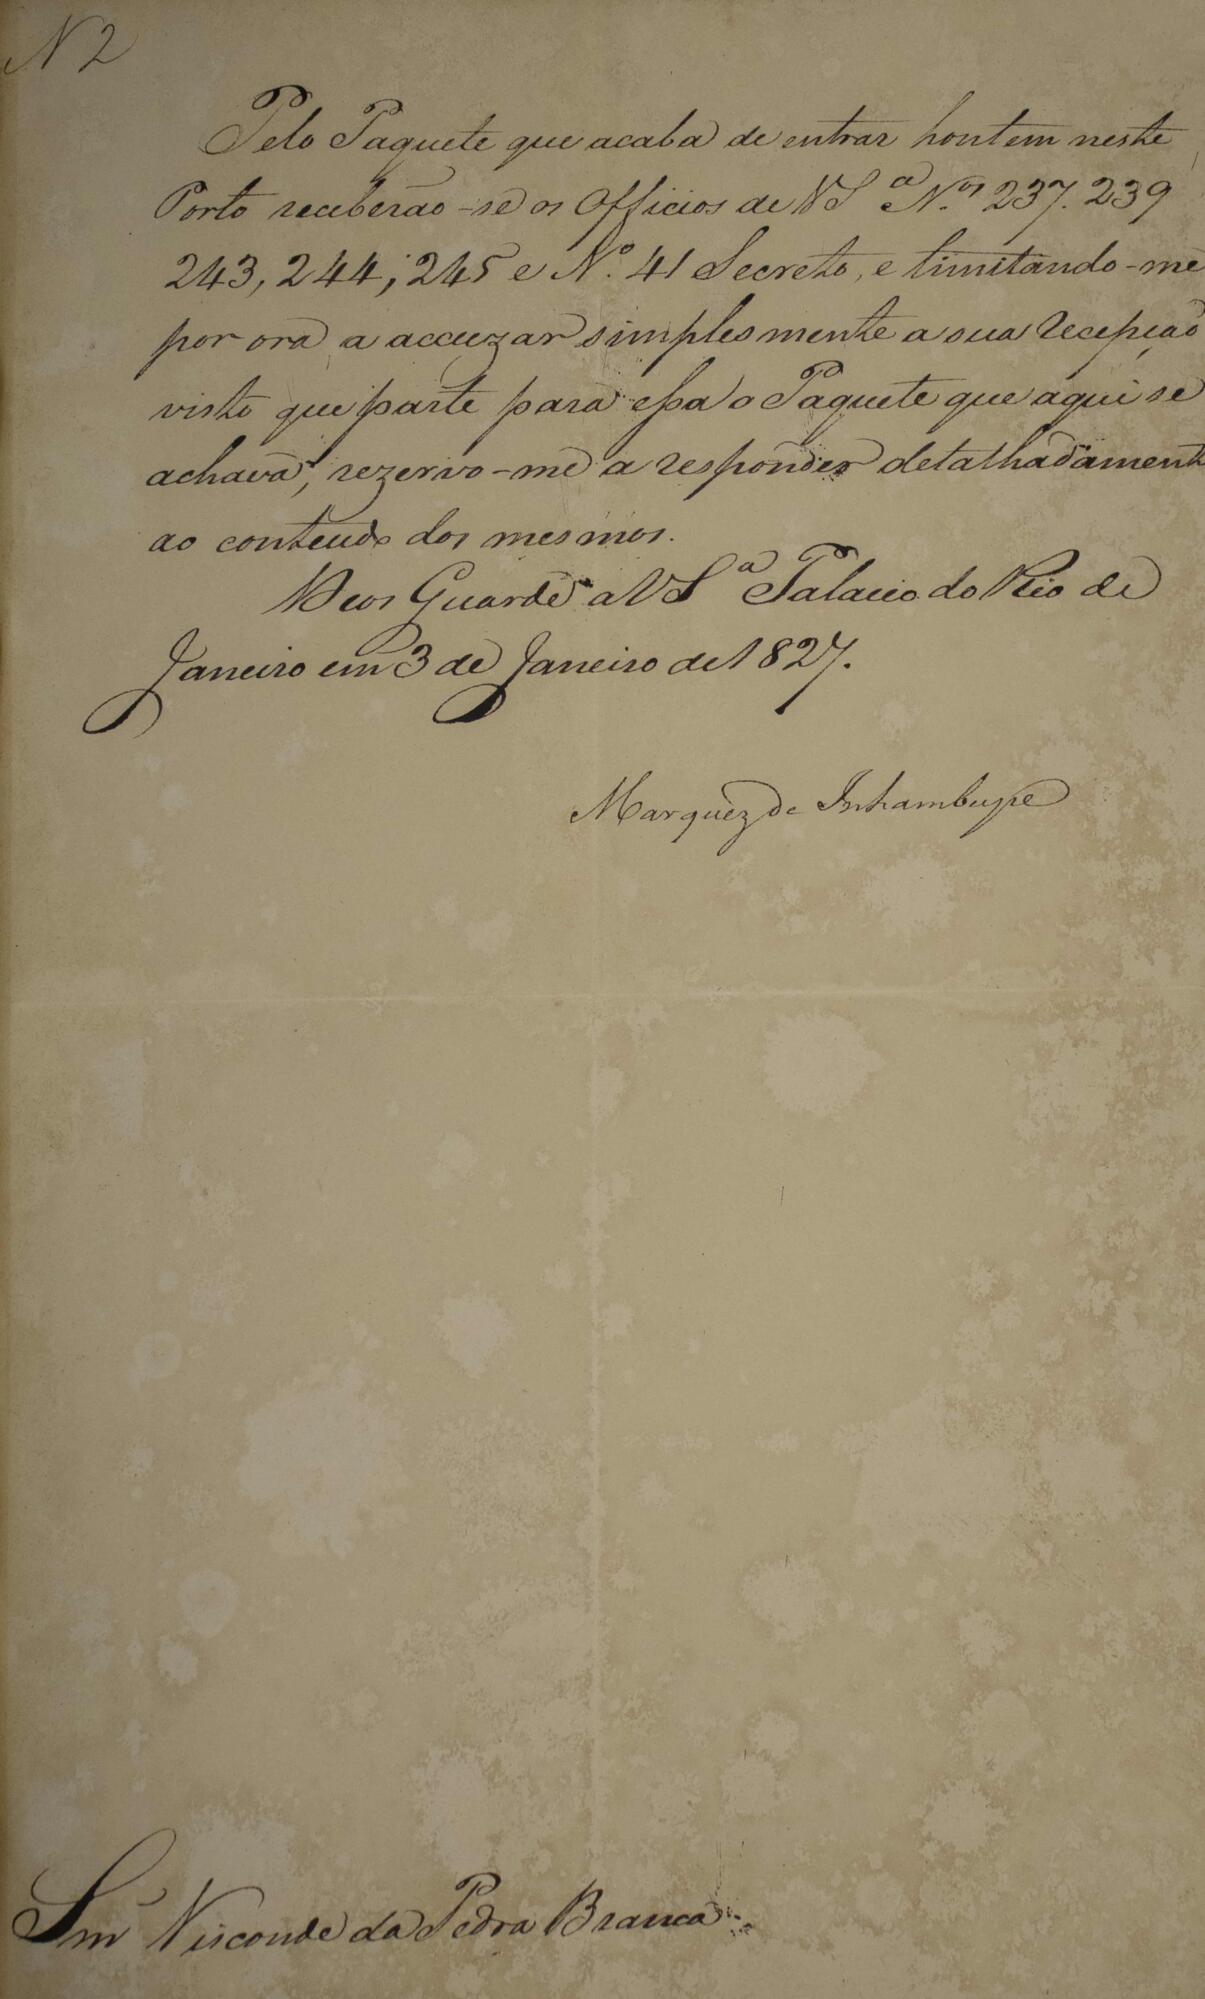 N 2
Pelo Paquete que acaba de entrar hontem neste
Porto receberão-se os Officios de VSª N.ºs 237. 239
243, 244, 245 e Nº. 41 Secreto, e limitando-me
por ora a accuzar simplesmente a sua recepção
visto que parte para essa o Paquete que aqui se
achava, rezervo-me a responder detalhadament
ao conteudo dos mesmos.
Deos Guarde a VSª Palacio do Rio de
Janeiro em 3 de Janeiro de 1827.
Marquez de Inhambupe
Snr Visconde da Pedra Branca